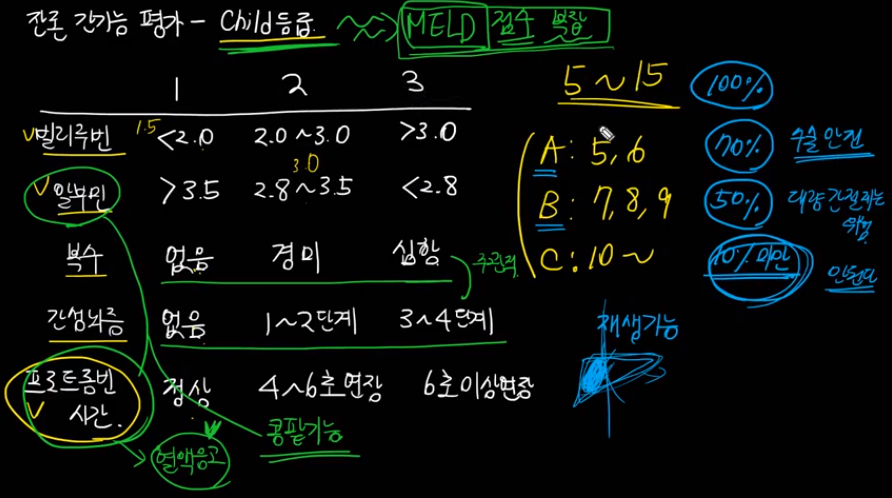 잔존 간기능 평가 - Child등급 MELD 점수 복잡
1 2 3
빌리루빈 1.5 <2.0 2.0~3.0 >3.0
알부민 >3.5 3.0 2.8~3.5 <2.8
복수 없음 경미 심함 주관적
간성뇌증 없음 1~2단계 3~4단계
프로트롬빈
시간 정상 4~6초연장 6초이상연장
혈액응고
콩팥기능
5~15 100%
A: 5, 6 70% 수술 안전
B: 7, 8, 9 50% 대량간절제는
위험
C: 10~ 10%미만 안된다
재생가능